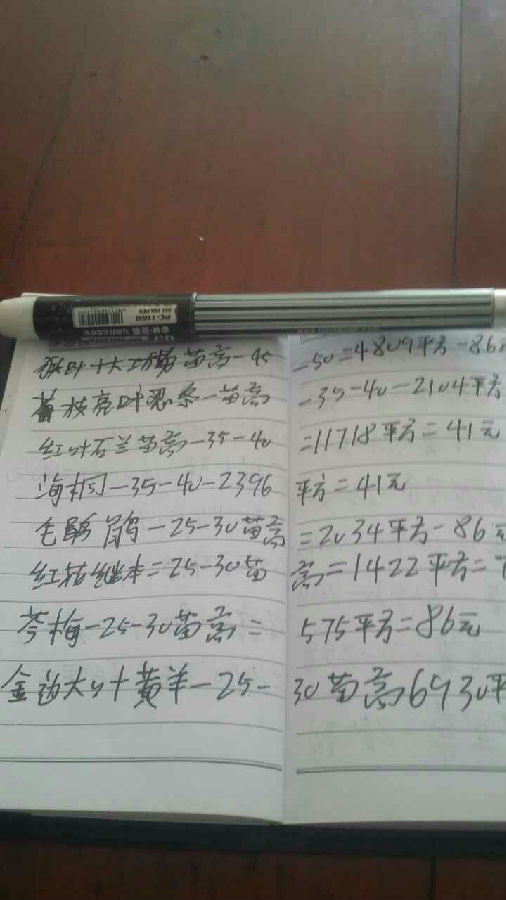 PC-1188
狭叶十大工劳苗高-45-50=4809平方-86元
枝亮叶忍冬-苗高-35-40-2104平方
红叶石兰苗高-35-40=11718平方=41元
海桐-35-40-2396平方=41元
毛鹃-25-30苗高=2034平方-86元
红花继木=25-30苗高=1422平方=7
苓梅-25-30苗高=575平方=86元
金边大叶十黄羊-25-30苗高6930平